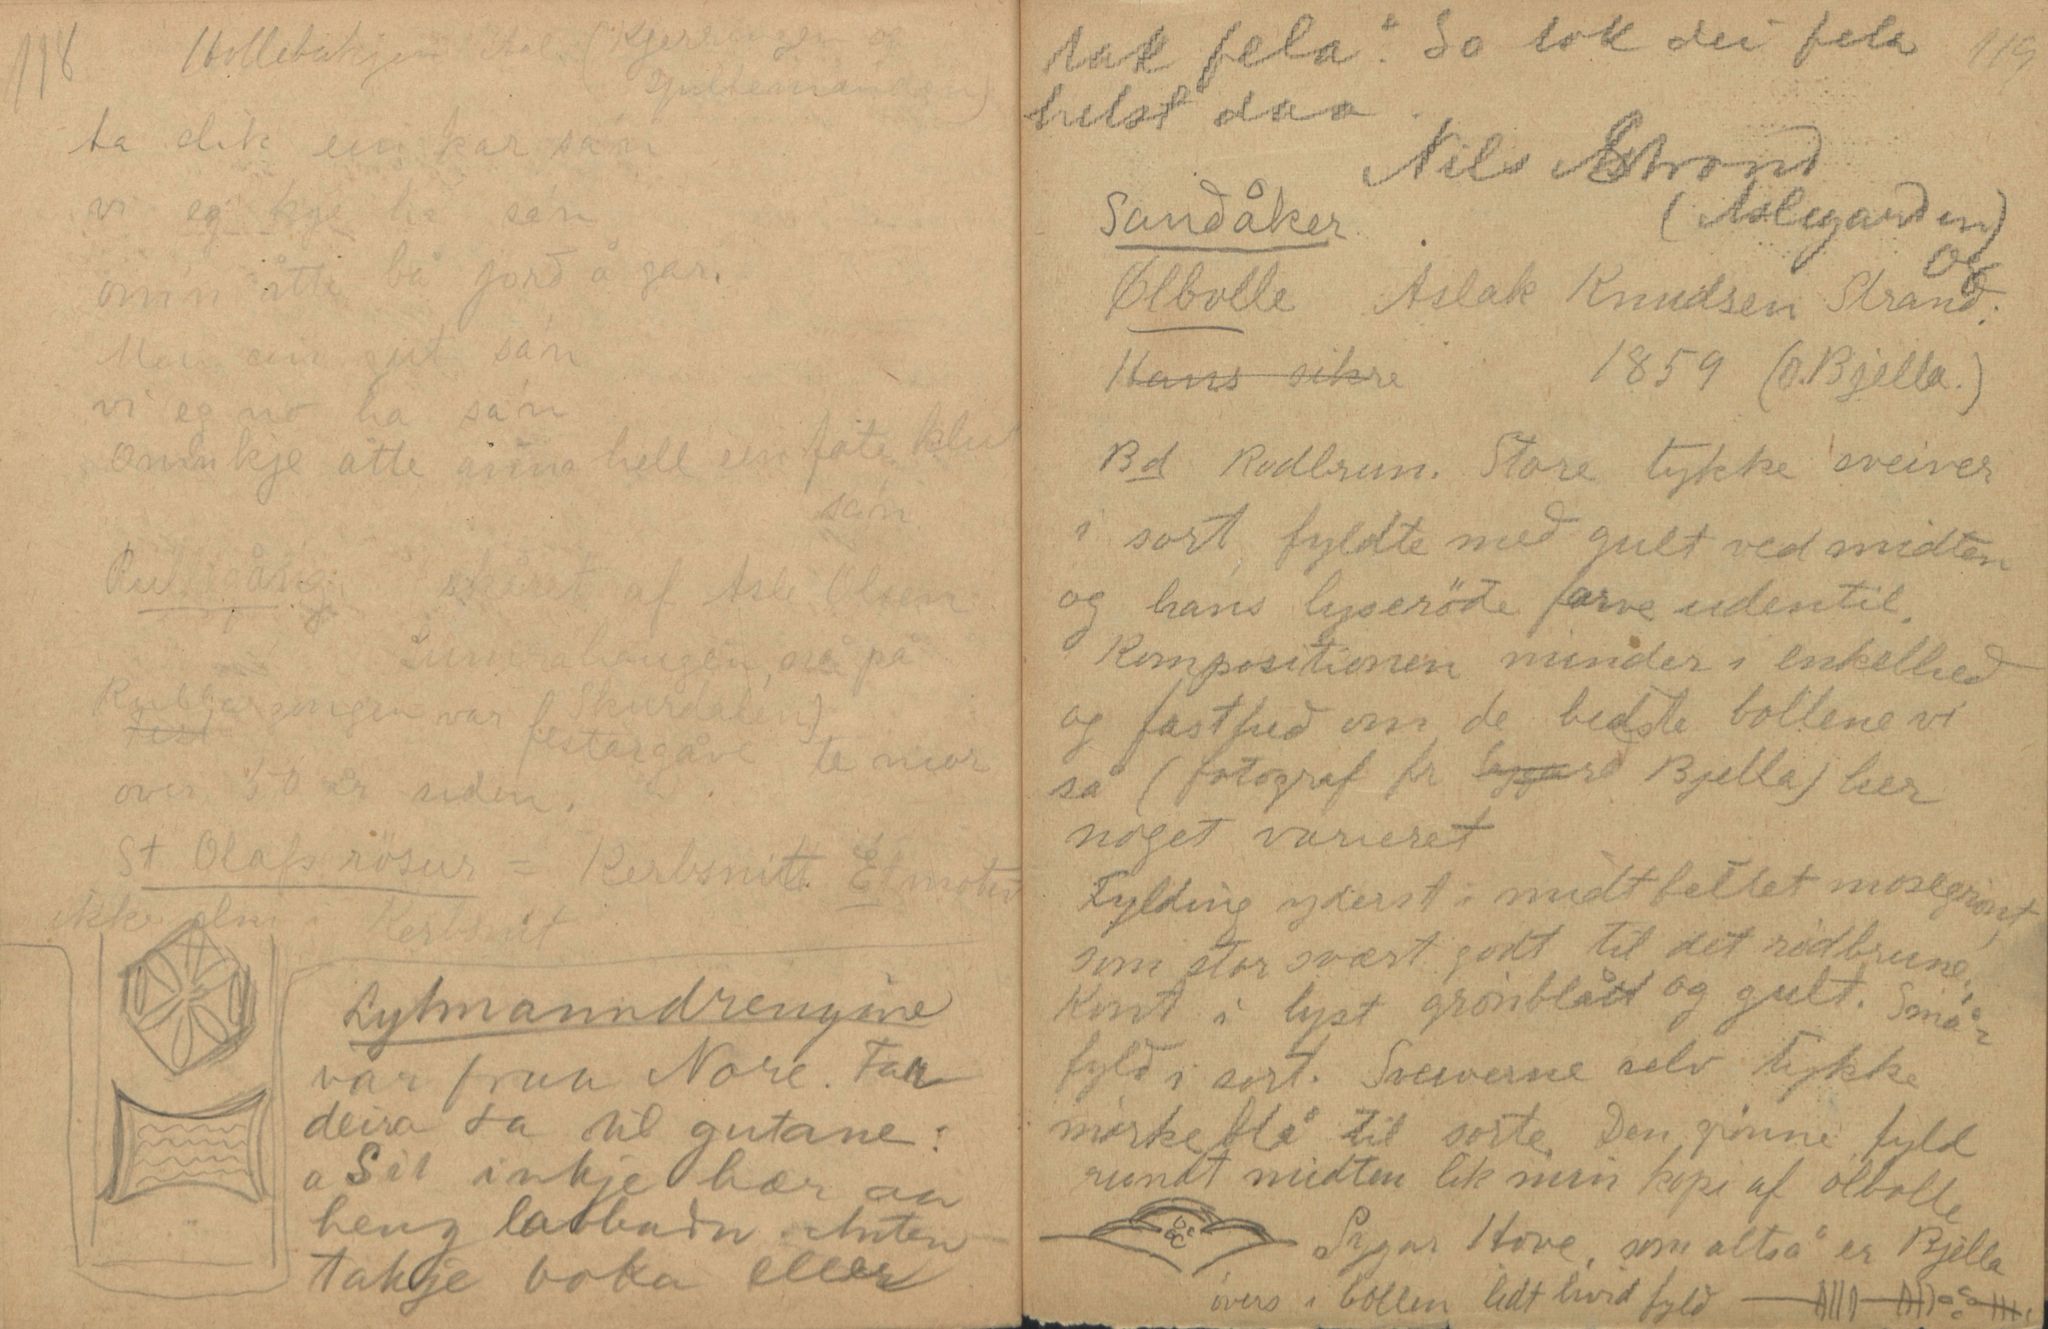 118
ta slik ein kar sán
vi eg kje ha sán
ominn åtte bå jord å gar.
Men ein gut sán
vi eg no ha sán
ominkje åtte anna hell ein file klut
sán
skåret af Asle Olsen
ne på
Skurdalen)
var festargåve te mor
over 50 år siden.
St Olafs rösur = Kerbsnitt Et motiv
ikke alm i Kerbsnit
Lytmanndrengine
var fraa Nore. Far
deira sa til gutane:
a Sit inkje hær aa
heng labbadn. Anten
takje boka eller
tak fela. So tok dei fela
helst daa.
119
Nils Strand
(Aslegarden)
og
Sandåker
Ølbolle Aslak Knudsen Strand.
Hans sikre 1859 (O. Bjella.)
Bd Rødbrun. Store tykke sveiver
i sort, fyldte med gult ved midten
og hans lyseröde farve udentil.
Kompositionen minder i enkelhed
og fasthed om de bedste bollene vi
så (fotograf fr Bjella) her
noget varieret
Fylding yderst i midtfeltet mosegrönt,
som står svært godt til det rødbrune.
Kint i lyst grönblått og gult. Små
fyld i sort. Sveiverne selv tykke
mörke blå til sorte. Den grönne fyld
rundt midten lik min kopi af ölbolle
Sygar Hove, som altså er Bjella
övers i bollen lidt hvid fyld